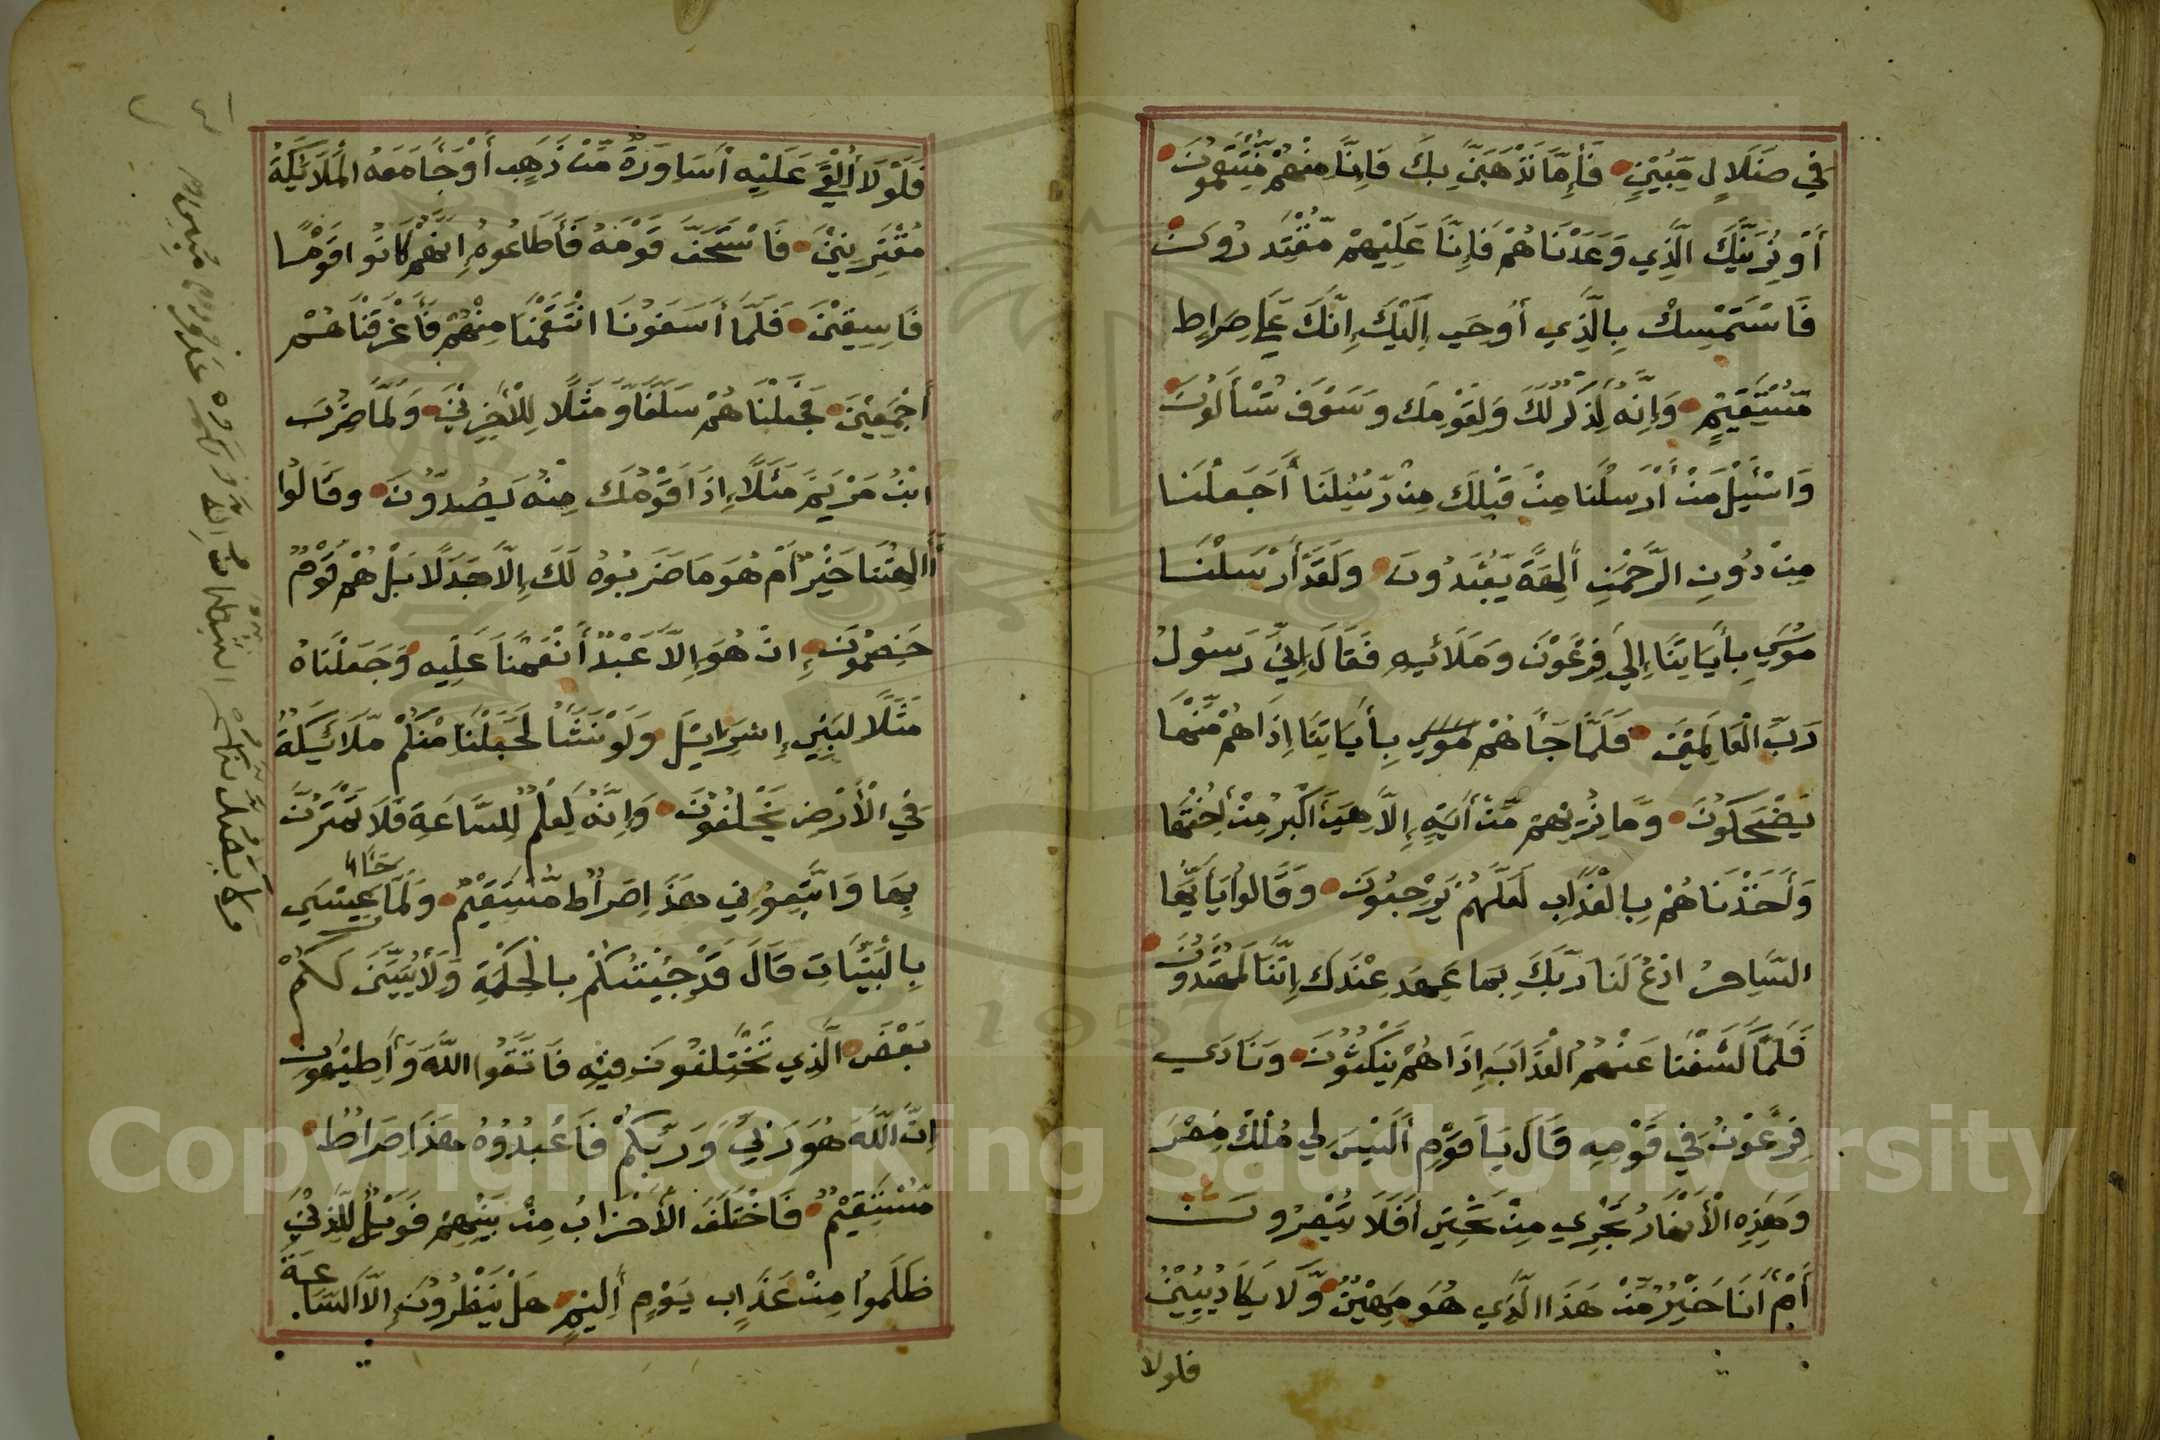 في ضَلَالٍ مُّبِيْنٍ فَأِمَّا نَذْهَبَنَّ بِكَ فَاِنَّا مِنْهُمْ مُّنْتَقِمُوْنَ
أَوْ نُرِيَنَّكَ الَّذِي وَعَدْنَاهُمْ فَإِنَّا عَلَيْهِمْ مُّقْتَدِرُونَ
فَاسْتَمْسِكْ بِالَّذِي أُوحِيَ إِلَيْكَ إِنَّكَ عَلَي صِرَاطٍ
مُّسْتَقِيْمٍ وَإِنَّهُ لَذِكْرٌ لَّكَ وَلِقَوْمِكَ وَسَوْفَ تُسْأَلُوْنَ
وَاسْئَلْ مَنْ أَرْسَلْنَا مِنْ قَبْلِكَ مِنْ رُّسُلِنَا أَجَعَلْنَا
مِنْ دُونِ الرَّحْمٰنِ أَلِهَةً يُّعْبَدُونَ وَلَقَدْ أَرْسَلْنَا
مُوْسَي بِأَيَاتِنَا إِلَي فِرْعَوْنَ وَمَلَائِهِ فَقَالَ إِنِّي رَسُولُ
رَبِّ الْعَالَمِيْنَ فَلَمَّا جَاهُمْ مُوْسَي بِأَيَاتِنَا إِذَا هُمْ مِّنْهَا
يَضْحَكُوْنَ وَمَا نُرِيْهِمْ مِّنْ أَيَةٍ إِلَّا هِيَ أَكْبَرُ مِنْ أُخْتِهَا
وَأَخَذْنَاهُمْ بِالْعَذَابِ لَعَلَّهُمْ يَرْجِعُوْنَ وَقَالُوا يَأَيُّهَا
السَّاحِرُ ادْعُ لَنَا رَبَّكَ بِمَا عَهِدَ عِنْدَكَ إِنَّنَا لَمُهْتَدُوْنَ
فَلَمَّا كَشَفْنَا عَنْهُمُ الْعَذَابَ إِذَا هُمْ يَنْكُثُوْنَ وَنَادَي
فِرْعَوْنُ فِي قَوْمِهِ قَالَ يَا قَوْمِ أَلَيْسَ لِي مُلْكُ مِصْرَ
وَهَذِهِ الْأَنْهَارُ تَجْرِي مِنْ تَحْتِي أَفَلَا تُبْصِرُونَ
أَمْ أَنَا خَيْرٌ مِّنْ هَذَا الَّذِي هُوَ مَهِيْنٌ وَّلَا يَكَادُ يُبِيْنُ
فلولا
فَلَوْلَا أُلْقِيَ عَلَيْهِ أَسَاوِرَةٌ مِّنْ ذَهَبٍ أَوْ جَأَ مَعَهُ الْمَلَائِكَةُ
مُقْتَرِنِيْنَ فَاسْتَخَفَّ قَوْمَهُ فَأَطَاعُوهُ إِنَّهُمْ كَانُوا قَوْمًا
فَاسِقِيْنَ فَلَمَّا أَسَفُونَا انْتَقَمْنَا مِنْهُمْ فَأَغْرَقْنَاهُمْ
أَجْمَعِيْنَ فَجَعَلْنَاهُمْ سَلَفًا وَّمَثَلًا لِلْأَخِرِيْنَ وَلَمَّا ضُرِبَ
ابْنُ مَرْيَمَ مَثَلًا إِذَا قَوْمُكَ مِنْهُ يَصِدُّوْنَ وَقَالُوا
أَأَلِهَتُنَا خَيْرٌ أَمْ هُوَ مَا ضَرَبُوهُ لَكَ إِلَّا جَدَلًا بَلْ هُمْ قَوْمٌ
خَصِمُوْنَ إِنْ هُوَ إِلَّا عَبْدٌ أَنْعَمْنَا عَلَيْهِ وَجَعَلْنَاهُ
مَثَلًا لِبَنِي إِسْرَائِيلَ وَلَوْ نَشَأُ لَجَعَلْنَا مِنْكُمْ مَّلَائِكَةً
فِي الْأَرْضِ يَخْلُفُوْنَ وَإِنَّهُ لَعِلْمٌ لِلسَّاعَةِ فَلَا تَمْتَرُنَّ
بِهَا وَاتَّبِعُوْنِي هَذَا صِرَاطٌ مُّسْتَقِيْمٌ وَلَمَّا جَأَ عِيْسَي
بِالْبَيِّنَاتِ قَالَ قَدْ جِئْتُكُمْ بِالْحِكْمَةِ وَلِأُبَيِّنَ لَكُمْ
بَعْضَ الَّذِي تَخْتَلِفُونَ فِيْهِ فَاتَّقُوا اللَّهَ وَأَطِيْعُوْنِ
إِنَّ اللَّهَ هُوَ رَبِّي وَرَبُّكُمْ فَاعْبُدُوْهُ هَذَا صِرَاطٌ
مُّسْتَقِيْمٌ فَاخْتَلَفَ الْأَحْزَابُ مِنْ بَيْنِهِمْ فَوَيْلٌ لِّلَّذِيْنَ
ظَلَمُوا مِنْ عَذَابِ يَوْمٍ أَلِيْمٍ هَلْ يَنْظُرُوْنَ إِلَّا السَّاعَةَ
ولا يصدنكم الشيطان انه لكم عدو مبين
Copyright © King Saud University
1957